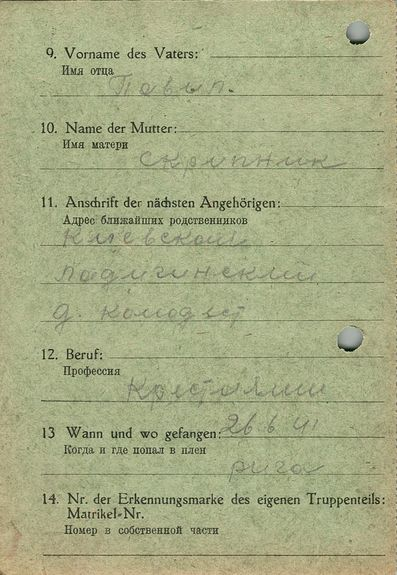 9. Vorname des Vaters:
Имя отца
Павып.
10. Name der Mutter:
Имя матери
Скрипник
11. Anschrift der nächsten Angehörigen:
Адрес ближайших родственников
Киевской
д. колодяст
12. Beruf:
Профессия
Крестьянин
13 Wann und wo gefangen: 26. 6. 41
Когда и где попал в плен
рига
14. Nr. der Erkennungsmarke des eigenen Truppenteils:
Matrikel-Nr.
Номер в собственной части